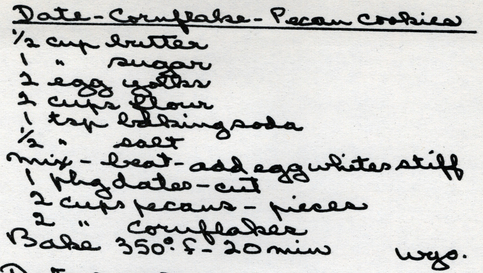 Date-Cornflake-Pecan cookies
1/2 cup butter
1 " sugar
2 egg yolks
2 cups flour
1 tsp baking soda
1/2 " salt
Mix-beat-add egg whites stiff
1 pkg dates-cut
2 cups pecans-pieces
2 " cornflakes
Bake 350°F-20 min